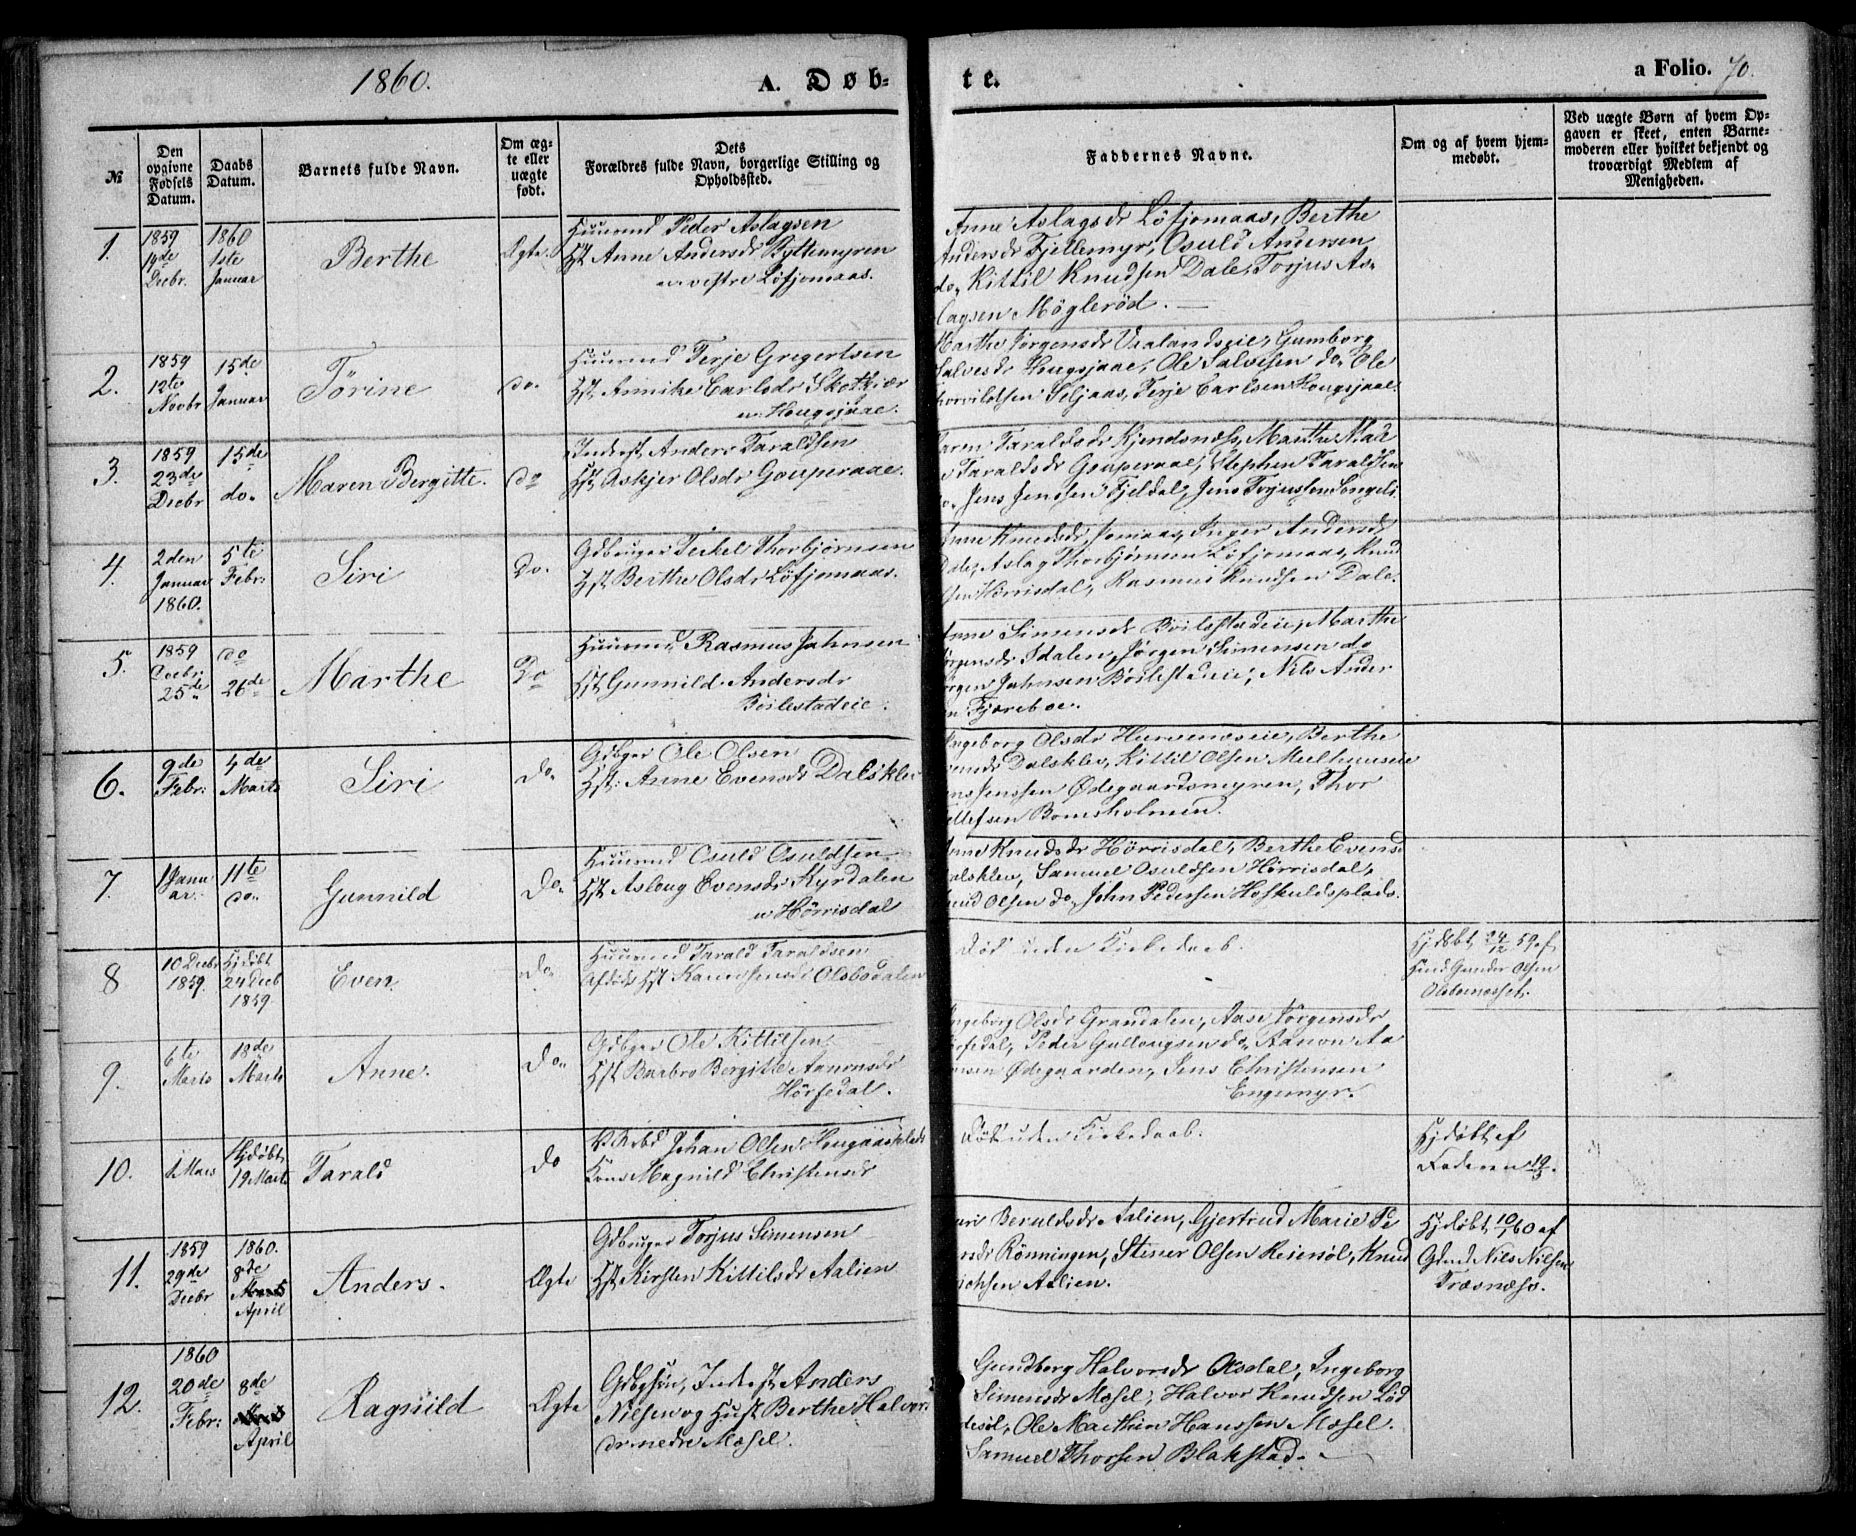 1860.
A. Døb-
te.
a Folio. 70.
№
Den opgivne Fødsels Datum.
Daabs Datum.
Barnets fulde Navn.
Om ægte eller uægte født.
Dets Forældres fulde Navn, borgerlige Stilling og Opholdsted.
Faddernes Navne.
Om og af hvem hjemmedøbt.
Ved uægte Børn af hvem Opgaven er skeet, enten Barnemoderen eller hvilket bekjendt og troværdigt Medlem af Menigheden.
1.
1859
19de
Decbr.
1860
1ste
Januar
Berthe
Ægte.
Huusmd Peder Aslagsen
Hst Anne Andersdr Byttemyren
vestre Løfjomaas.
Anne Aslagsdr Løfjomaas, Berthe
Andersdr Fjellemyr, Osuld Andersen
do, Kittil Knudsen Dale, Torjus As-
lagsen Møglerød.
2.
1859
12te
Novbr
15de
Januar
Tørine
do.
Huusmd Terje Gregertsen
Hst. Annike Carlsdr
Hougsjaae.
Marthe Jørgensdr Vaalandseie, Gumborg
Salvesdr Hougsjaae, Ole Salvesen do. Ole
Thorvildsen Seljaas, Terje Carlsen Hougsjaae
3.
1859
23de
Decbr
15de
do.
Maren Bergitte.
do
Inderst, Anders Taraldsen
Hst Askjer Olsdr Gouperaae.
Karen Taraldsdr Kjendsnæs, Marthe Mar
Taraldsdr Gouperaae, Stephen Taraldsen
do. Jens Jensen Fjeldal, Jens Torjussen Songeli
4.
2den
Januar
1860.
5te
Febr.
Siri
Do.
Gdbruger Terkel Thorbjørnsen
Hst Berthe Olsdr Løfjomaas.
Anne Knudsdr Jomaas, Inger Andersdr
Dale, Aslag Thorbjørnsen Løfjomaas, Knud
sen Hørrisdal, Rasmus Knudsen Dale.
5.
1859
Decbr.
25de
do
26de
Marthe
Do
Huusmd, Rasmus Jahnsen
Hst Gunnild Andersdr
Bøilestadeie.
Anne Simensdr Bøilestadeie, Marthe
Jørgensdr Idalen, Jørgen Simensen do
Jørgen Jahnsen Bøilestadeie, Nils Ander
sen Fjæreboe.
6.
9de
Febr:
4de
Marts
Siri
do.
Gdbger Ole Olsen
Hst: Anne Evensdr Dalsklev
Ingeborg Olsdr Hurvenæseie, Berthe
Evensdr Dalsklev, Kittil Olsen Meelhuuseie
Jens Jenssen Ødegaardsmyren, Thor
Tellefsen Bomsholmen.
7.
1 Janu
ar.
11te
do.
Gunnild
Do.
Huusmd Osuld Osuldsen
Hst Asloug Evensdr Kyrdalen
u Hørrisdal
Anne Knudsdr Hørrisdal, Berthe Evensd
Dalsklev, Samuel Osuldsen Hørrisdal,
Knud Olsen do, John Pedersen Høskuldsplads.
8
10 Decbr
1859.
Hjdøbt
24 Decb
1859.
Even
do.
Huusmd Tarald Taraldsen
Afdøde Hst Karen Jensdr Olsbodalen
Død uden Kirkedaab.
Hjdøbt 24/12 59. af
Gunder Olsen
Olsbonæsset.
9.
6te
Marts
18de
Marts
Anne.
Do.
Gdbger Ole Kittilsen
Hst Barbro Bergitte Aanonsdr
Hørsedal.
Ingeborg Olsdr Grandalen, Aase Jørgensdr
Hørsedal, Peder Gullougsen do. Aanon Aa
nonsen Ødegaarden, Jens Christensen
Engemyr.
10.
1 Mars
Hjdøbt
19 Marts
Tarald
do
Johan Olsen Hougaasplads
Kone Magnild Christensdr
Død uden Kirkedaab.
Hjdøbt af
Faderen 19/3.
11.
1859
29de
Decbr
1860.
8de
April
Anders.
Ægte
Gdbruger Torjus Simensen
Hst Kirsten Kittilsdr Aalien
Guri Beruldsdr Aalien, Gjertrud Marie Pe
dersdr Rønningen, Stiner Olsen Reiersøl, Knud
Aalien.
Hjdøbt 10/1 60 af
Gdmd Nils Nilsen
Træsnæss.
12.
1860
20de
Febr:
8de
April
Ragnild
Ægte
Gdbgsøn, Inderst Anders
Nilsen og Hust Berthe Halvor
dr nedre Mæsel.
Gundborg Halvorsdr Ousdal, Ingeborg
Simensdr Mæsel, Halvor Knudsen Lød
desøl, Ole Mathias Hanssen Mæsel.
Samuel Thorsen Blakstad.